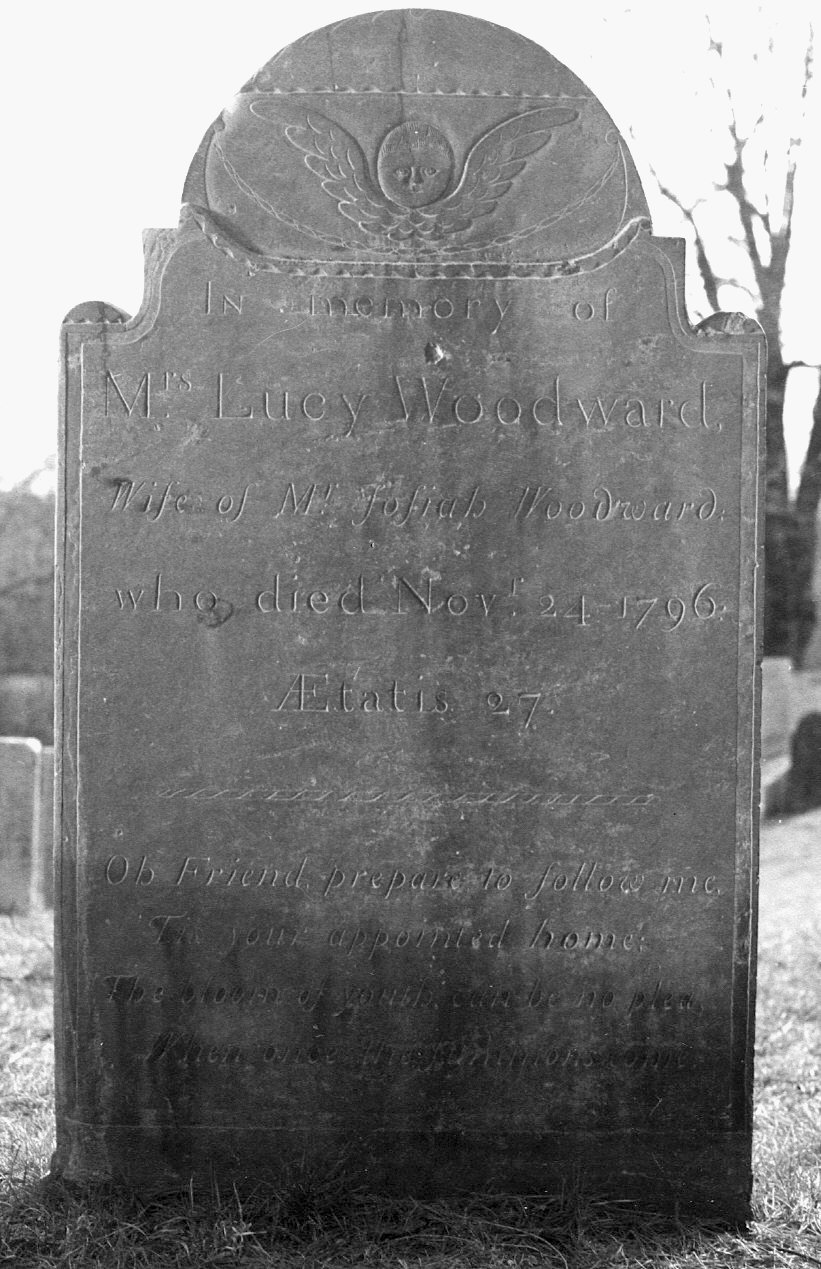 In memory of
Mrs. Lucy Woodward,
Wife of Mr. Joſiah Woodward;
who died Novr. 24 1796.
Ætatis 27.
Oh Friend, prepare to follow me,
Tis your appointed home;
The bloom of youth can be no plea,
When once the summons come.